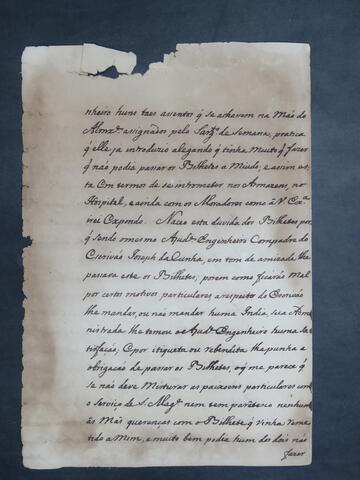 nheiro huns taes assentos q̃ se achavem na Mão do
Almx.e assignados pelo Sarg.to de Semana, pratica
q̃ elle ja introduzio alegando q̃ tinha Muito q̃ fazer
q̃ não podia passar os Bilhetes a Miudo, e assim es
ta Em termos de se intrometer nos Armazens, no
Hospital, e ainda com os Moradores como a V. Ex.ª
irei Expondo. Nace esta duvida dos Bilhetes por
q̃ sendo o mesmo Ajud.e Engenheiro Compadre do
Escrivão Joseph da Cunha, em tom de amizade lhe
passava este os Bilhetes, porem como ficarão Mal
por certos motivos particulares a respeito do Escrivão
lhe mandar, ou não mandar huma India, sua Admi
nistrada lhe tomou o Ajud.e Engenheiro huma Sa
tisfação, E por itiqueta ou rebendita lhe punha a
obrigação de passar os Bilhetes, o q̃ me parece q̃
se não deve Misturar as paixoens particulares com
o Serviço de S. Mag.e nem tem parentesco nenhum
as Más querenças com o Bilhete q̃ vinha reme
tido a Mim, e muito bem podia hum dos dois não
fazer